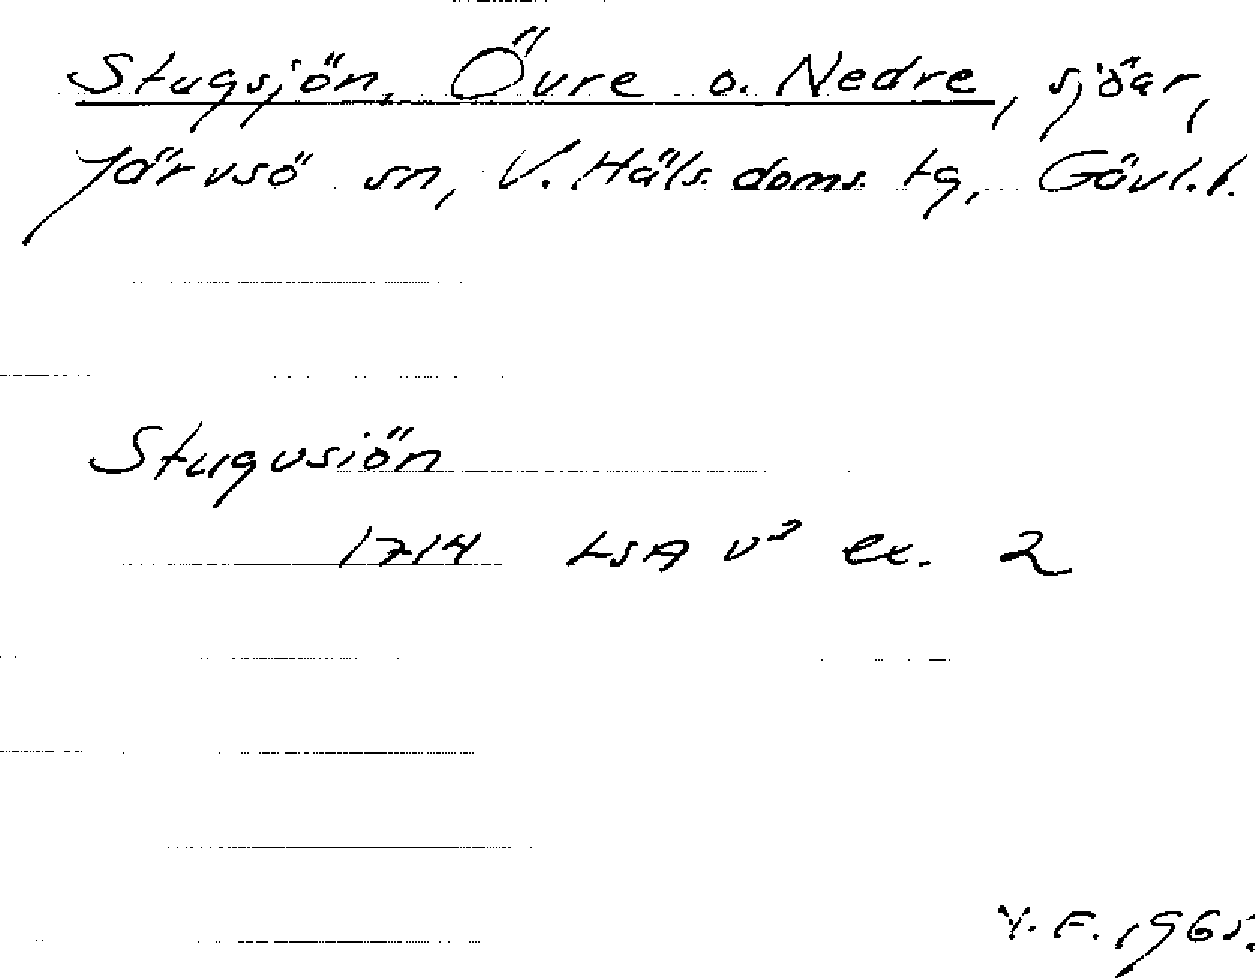 Stugsjön, Övre o. Nedre, sjöar,
Järvsö sn, V. Häls. doms. tg, Gävl.l.
Stugusiön
1714 LSA v³ ex. 2
Y. F. 1965.